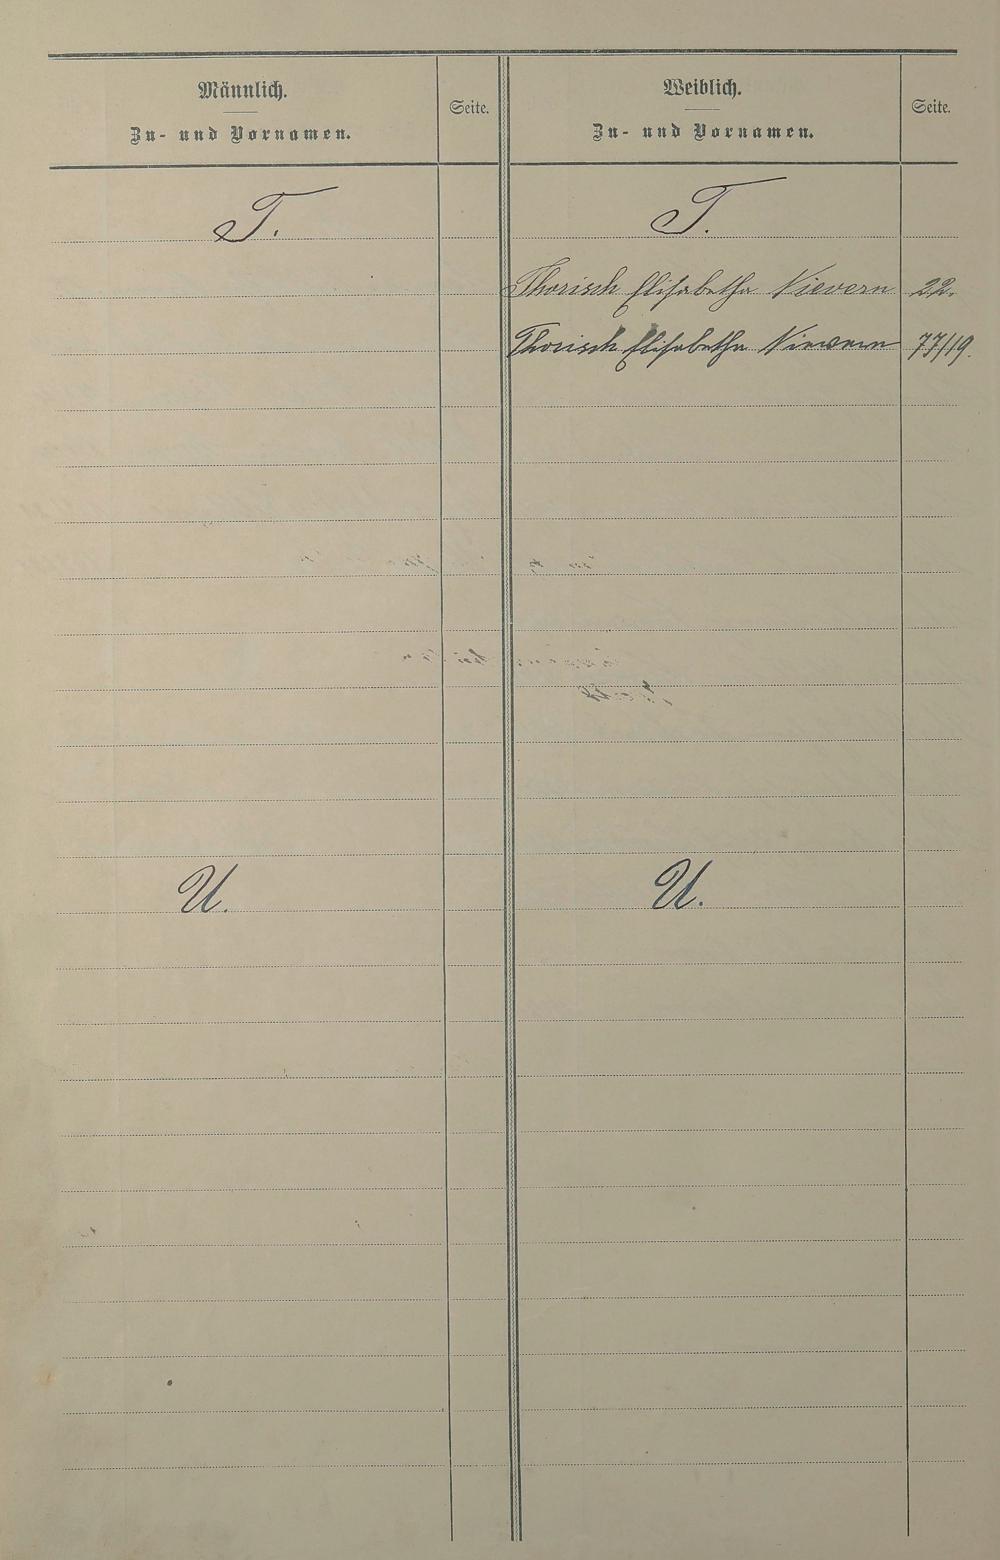 Männlich.
Zu- und Vornamen.
Seite.
Weiblich.
Zu- und Vornamen.
Seite.
T.
T.
Thorisch Elisabetha Nievern 22.
Thorisch Elisabetha Nievern 77/19.
U.
U.